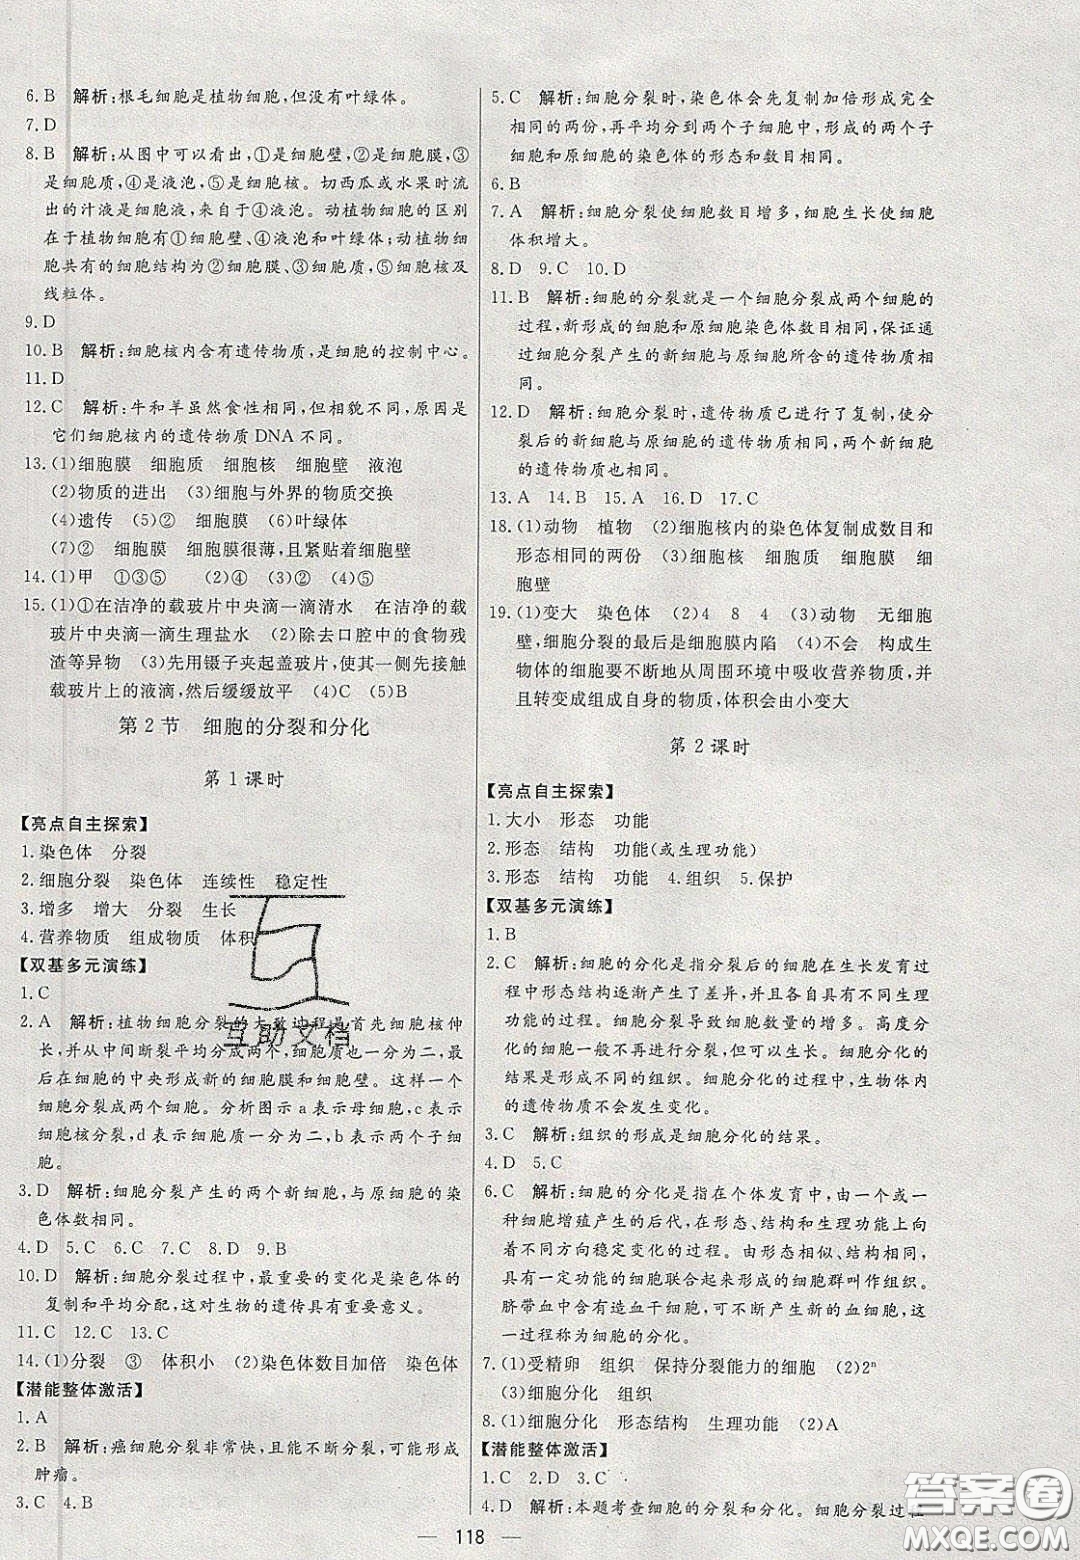 6. B　解析:根毛细胞是植物细胞,但没有叶绿体。
7. D
8. B　解析:从图中可以看出,①是细胞壁,②是细胞膜,③
是细胞质,④是液泡,⑤是细胞核。切西瓜或水果时流
出的汁液是细胞液,来自于④液泡。动植物细胞的区别
在于植物细胞有①细胞壁、④液泡和叶绿体;动植物细
胞共有的细胞结构为②细胞膜、③细胞质、⑤细胞核及
线粒体。
9. D
10. B　解析:细胞核内含有遗传物质,是细胞的控制中心。
11. D
12. C　解析:牛和羊虽然食性相同,但相貌不同,原因是
它们细胞核内的遗传物质DNA不同。
13. (1)细胞膜　细胞质　细胞核　细胞壁　液泡
(2)物质的进出　(3)细胞与外界的物质交换
(4)遗传　(5)②　细胞膜　(6)叶绿体
(7)②　细胞膜　细胞膜很薄,且紧贴着细胞壁
14. (1)甲　①③⑤　(2)④　(3)②　(4)⑤
15. (1)①在洁净的载玻片中央滴一滴清水　在洁净的载
玻片中央滴一滴生理盐水　(2)除去口腔中的食物残
渣等异物　(3)先用镊子夹起盖玻片,使其一侧先接触
载玻片上的液滴,然后缓缓放平　(4)C　(5)B
第 2 节　细胞的分裂和分化
第 1 课时
【亮点自主探索】
1. 染色体　分裂
2. 细胞分裂　染色体　连续性　稳定性
3. 增多　增大　分裂　生长
4. 营养物质　组成物质　体积
【双基多元演练】
1. C
2. A　解析:植物细胞分裂的大致过程是首先细胞核伸
长,并从中间断裂平均分成两个,细胞质一分为二,最
后在细胞的中央形成新的细胞膜和细胞壁。这样一个
细胞分裂成两个细胞。分析图示a表示母细胞,c表示
细胞核分裂,d表示细胞质一分为二,b表示两个子细
胞。
3. D　解析:细胞分裂产生的两个新细胞,与原细胞的染
色体数相同。
4. D　5. C　6. C　7. C　8. D　9. B
10. D　解析:细胞分裂过程中,最重要的变化是染色体的
复制和平均分配,这对生物的遗传具有重要意义。
11. C　12. C　13. C
14. (1)分裂　③　体积小　(2)染色体数目加倍　染色体
【潜能整体激活】
1. A
2. B　解析:癌细胞分裂非常快,且能不断分裂,可能形成
肿瘤。
3. C　4. B
5. C　解析:细胞分裂时,染色体会先复制加倍形成完全
相同的两份,再平均分到两个子细胞中,形成的两个子
细胞和原细胞的染色体的形态和数目相同。
6. B
7. A　解析:细胞分裂使细胞数目增多,细胞生长使细胞
体积增大。
8. D　9. C　10. D
11. B　解析:细胞的分裂就是一个细胞分裂成两个细胞的
过程,新形成的细胞和原细胞染色体数目相同,保证通
过细胞分裂产生的新细胞与原细胞所含的遗传物质相
同。
12. D　解析:细胞分裂时,遗传物质已进行了复制,使分
裂后的新细胞与原细胞的遗传物质相同,两个新细胞
的遗传物质也相同。
13. A　14. B　15. A　16. D　17. C
18. (1)动物　植物　(2)细胞核内的染色体复制成数目和
形态相同的两份　(3)细胞核　细胞质　细胞膜　细
胞壁
19. (1)变大　染色体　(2)4　8　4　(3)动物　无细胞
壁,细胞分裂的最后是细胞膜内陷　(4)不会　构成生
物体的细胞要不断地从周围环境中吸收营养物质,并
且转变成组成自身的物质,体积会由小变大
第 2 课时
【亮点自主探索】
1. 大小　形态　功能
2. 形态　结构　功能(或生理功能)
3. 形态　结构　功能　4. 组织　5. 保护
【双基多元演练】
1. B
2. C　解析:细胞的分化是指分裂后的细胞在生长发育过
程中形态结构逐渐产生了差异,并且各自具有不同生理
功能的过程。细胞分裂导致细胞数量的增多。高度分
化的细胞一般不再进行分裂,但可以生长。细胞分化的
结果是形成不同的组织。细胞分化的过程中,生物体内
的遗传物质不会发生变化。
3. C　解析:组织的形成是细胞分化的结果。
4. D　5. C
6. C　解析:细胞的分化是指在个体发育中,由一个或一
种细胞增殖产生的后代,在形态、结构和生理功能上向
着不同方向稳定变化的过程。由形态相似、结构相同,
具有一定功能的细胞联合起来形成的细胞群叫作组织。
脐带血中含有造血干细胞,可不断产生新的血细胞,这
一过程称为细胞的分化。
7. (1)受精卵　组织　保持分裂能力的细胞　(2)2ⁿ
(3)细胞分化　组织
8. (1)细胞分化　形态结构　生理功能　(2)A
【潜能整体激活】
1. C　2. D　3. C
4. D　解析:本题考查细胞的分裂和分化。细胞分裂过程
— 118 —
互助文档
答案圈
MXQE.COM